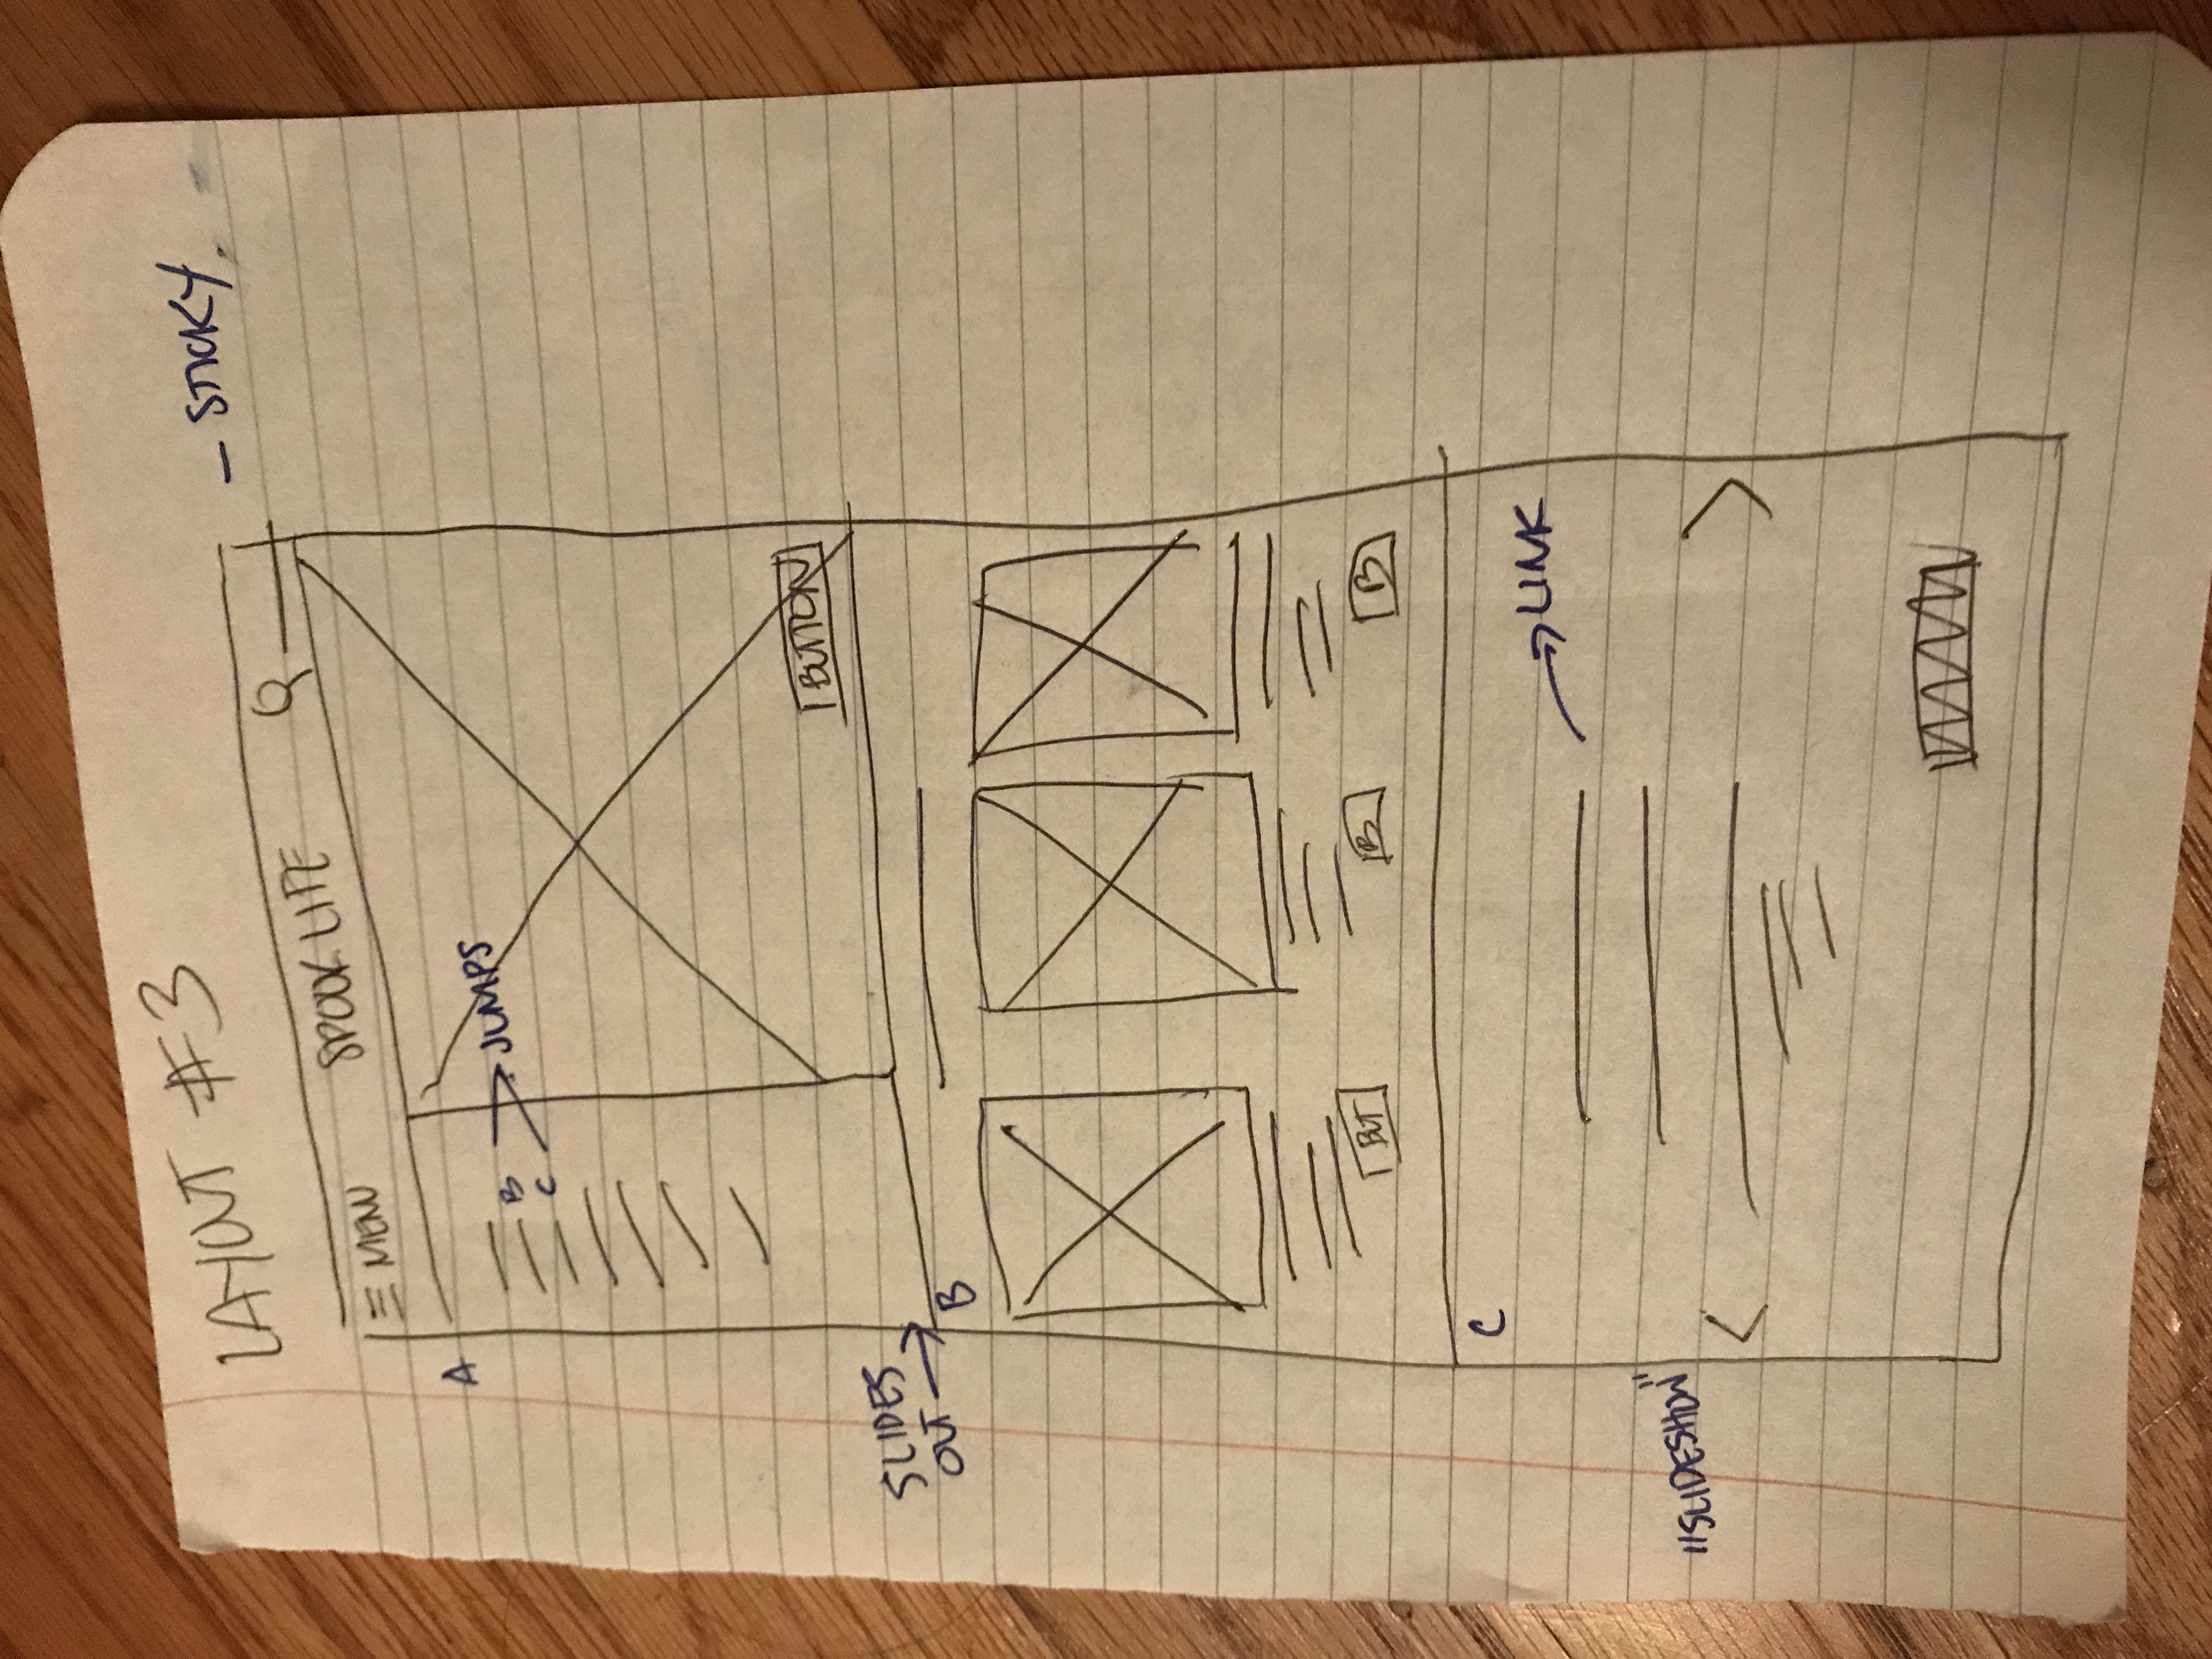 LAYOUT #3
- STICKY.
MENU SPOOK LIFE
A
B
C
JUMPS
BUTTON
SLIDES
OUT
B
BUT
B
B
C
LINK
"SLIDESHOW"